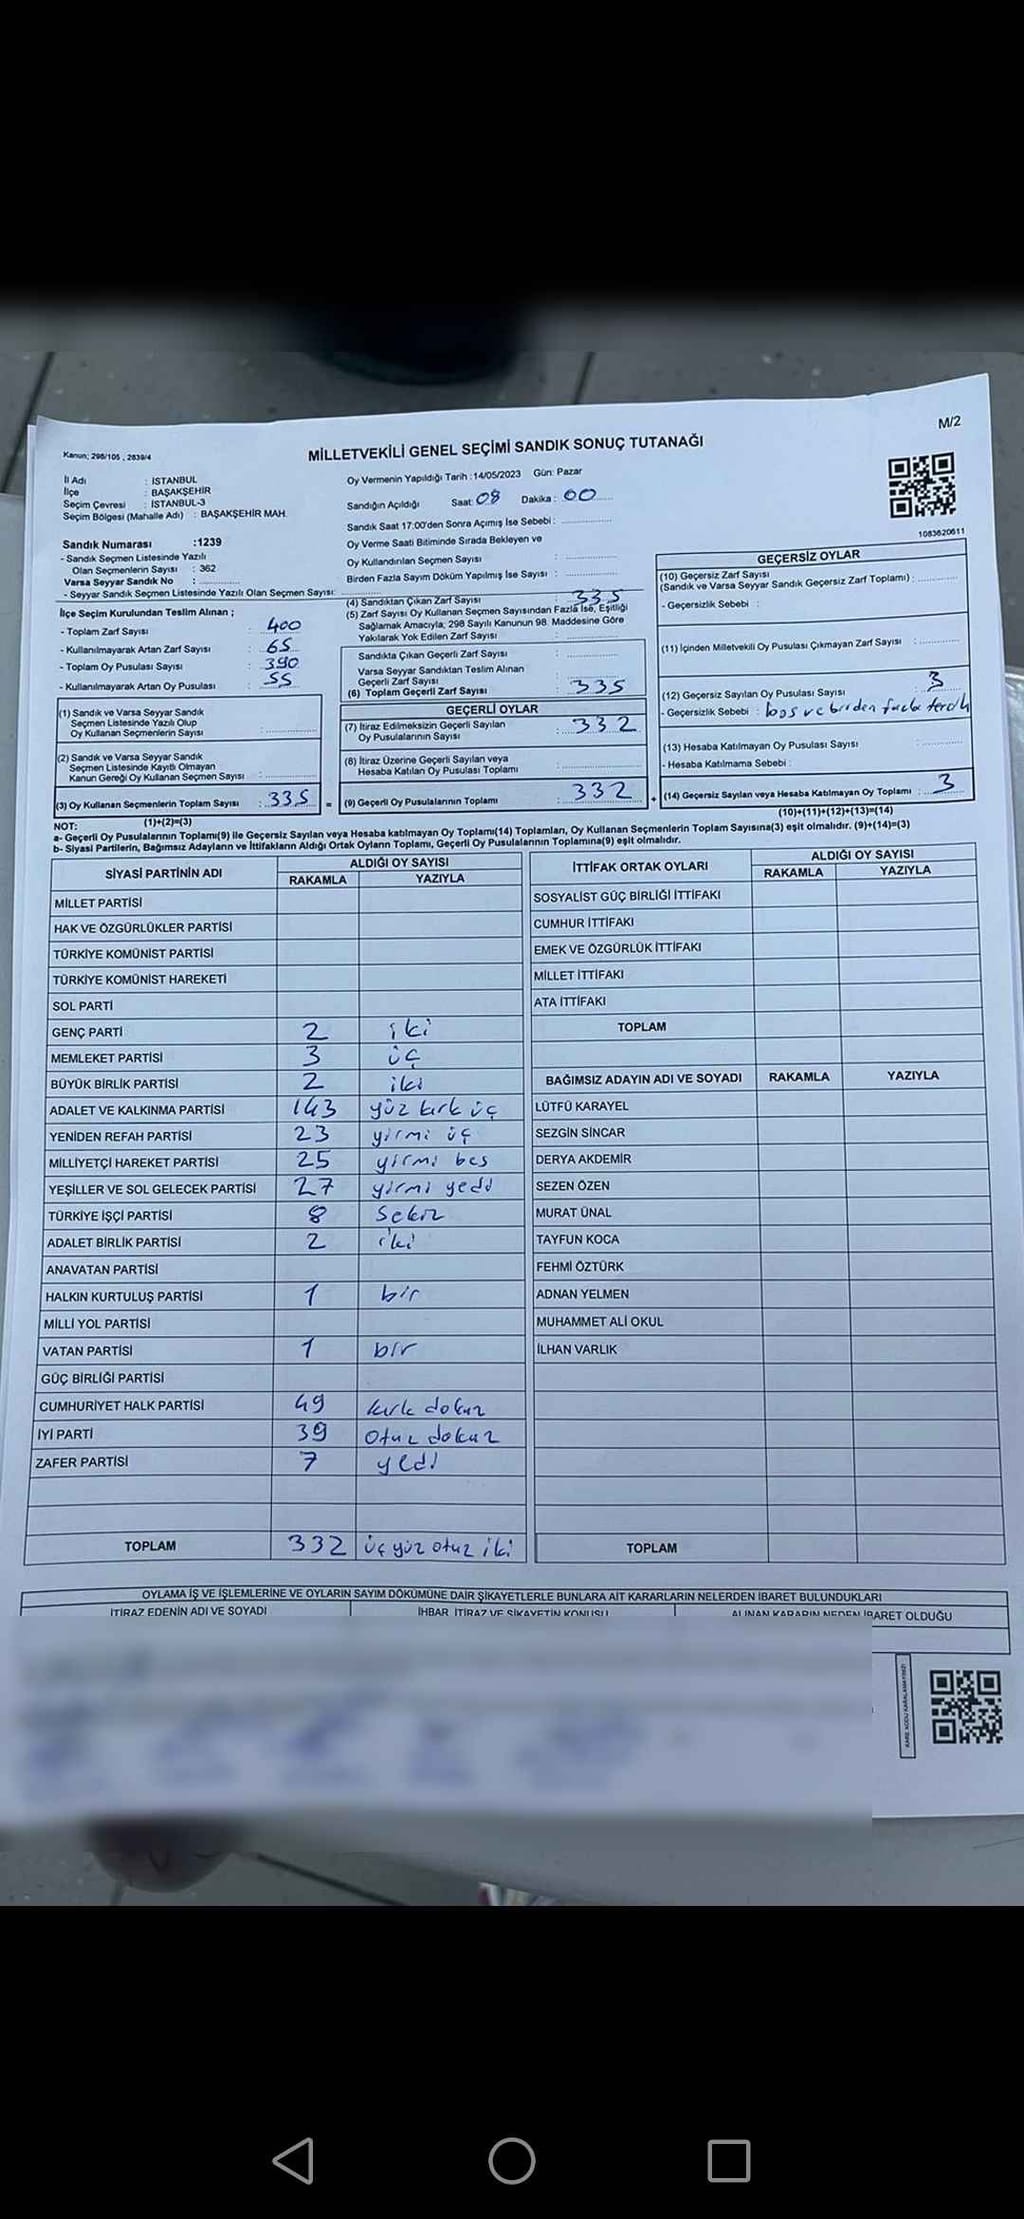 M/2
Kanun; 298/105 , 2839/4
MİLLETVEKİLİ GENEL SEÇİMİ SANDIK SONUÇ TUTANAĞI
İl Adı : İSTANBUL
İlçe : BAŞAKŞEHİR
Seçim Çevresi : İSTANBUL-3
Seçim Bölgesi (Mahalle Adı) : BAŞAKŞEHİR MAH.
Oy Vermenin Yapıldığı Tarih :14/05/2023 Gün: Pazar
Sandığın Açıldığı Saat: 08 Dakika : 00
Sandık Saat 17:00'den Sonra Açımış İse Sebebi :
Oy Verme Saati Bitiminde Sırada Bekleyen ve
Oy Kullandırılan Seçmen Sayısı :
Birden Fazla Sayım Döküm Yapılmış İse Sayısı :
1083620611
Sandık Numarası :1239
- Sandık Seçmen Listesinde Yazılı
Olan Seçmenlerin Sayısı : 362
Varsa Seyyar Sandık No :
- Seyyar Sandık Seçmen Listesinde Yazılı Olan Seçmen Sayısı:
İlçe Seçim Kurulundan Teslim Alınan ;
- Toplam Zarf Sayısı : 400
- Kullanılmayarak Artan Zarf Sayısı : 65
- Toplam Oy Pusulası Sayısı : 390
- Kullanılmayarak Artan Oy Pusulası : 55
(1) Sandık ve Varsa Seyyar Sandık
Seçmen Listesinde Yazılı Olup
Oy Kullanan Seçmenlerin Sayısı :
(2) Sandık ve Varsa Seyyar Sandık
Seçmen Listesinde Kayıtlı Olmayan
Kanun Gereği Oy Kullanan Seçmen Sayısı :
(3) Oy Kullanan Seçmenlerin Toplam Sayısı : 335 =
(1)+(2)=(3)
(4) Sandıktan Çıkan Zarf Sayısı : 335
(5) Zarf Sayısı Oy Kullanan Seçmen Sayısından Fazla İse, Eşitliği
Sağlamak Amacıyla, 298 Sayılı Kanunun 98. Maddesine Göre
Yakılarak Yok Edilen Zarf Sayısı :
Sandıkta Çıkan Geçerli Zarf Sayısı :
Varsa Seyyar Sandıktan Teslim Alınan
Geçerli Zarf Sayısı :
(6) Toplam Geçerli Zarf Sayısı : 335
GEÇERLİ OYLAR
(7) İtiraz Edilmeksizin Geçerli Sayılan
Oy Pusulalarının Sayısı : 332
(8) İtiraz Üzerine Geçerli Sayılan veya
Hesaba Katılan Oy Pusulası Toplamı :
(9) Geçerli Oy Pusulalarının Toplamı : 332 +
GEÇERSİZ OYLAR
(10) Geçersiz Zarf Sayısı
(Sandık ve Varsa Seyyar Sandık Geçersiz Zarf Toplamı) :
- Geçersizlik Sebebi :
(11) İçinden Milletvekili Oy Pusulası Çıkmayan Zarf Sayısı :
(12) Geçersiz Sayılan Oy Pusulası Sayısı : 3
- Geçersizlik Sebebi : boş ve birden fazla tercih
(13) Hesaba Katılmayan Oy Pusulası Sayısı :
- Hesaba Katılmama Sebebi :
(14) Geçersiz Sayılan veya Hesaba Katılmayan Oy Toplamı : 3
(10)+(11)+(12)+(13)=(14)
NOT:
a- Geçerli Oy Pusulalarının Toplamı(9) ile Geçersiz Sayılan veya Hesaba katılmayan Oy Toplamı(14) Toplamları, Oy Kullanan Seçmenlerin Toplam Sayısına(3) eşit olmalıdır. (9)+(14)=(3)
b- Siyasi Partilerin, Bağımsız Adayların ve İttifakların Aldığı Ortak Oyların Toplamı, Geçerli Oy Pusulalarının Toplamına(9) eşit olmalıdır.
SİYASİ PARTİNİN ADI ALDIĞI OY SAYISI
RAKAMLA YAZIYLA
MİLLET PARTİSİ
HAK VE ÖZGÜRLÜKLER PARTİSİ
TÜRKİYE KOMÜNİST PARTİSİ
TÜRKİYE KOMÜNİST HAREKETİ
SOL PARTİ
GENÇ PARTİ 2 iki
MEMLEKET PARTİSİ 3 üç
BÜYÜK BİRLİK PARTİSİ 2 iki
ADALET VE KALKINMA PARTİSİ 143 yüz kırk üç
YENİDEN REFAH PARTİSİ 23 yirmi üç
MİLLİYETÇİ HAREKET PARTİSİ 25 yirmi beş
YEŞİLLER VE SOL GELECEK PARTİSİ 27 yirmi yedi
TÜRKİYE İŞÇİ PARTİSİ 8 Sekiz
ADALET BİRLİK PARTİSİ 2 iki
ANAVATAN PARTİSİ
HALKIN KURTULUŞ PARTİSİ 1 bir
MİLLİ YOL PARTİSİ
VATAN PARTİSİ 1 bir
GÜÇ BİRLİĞİ PARTİSİ
CUMHURİYET HALK PARTİSİ 49 kırk dokuz
İYİ PARTİ 39 Otuz dokuz
ZAFER PARTİSİ 7 yedi
TOPLAM 332 üç yüz otuz iki
İTTİFAK ORTAK OYLARI ALDIĞI OY SAYISI
RAKAMLA YAZIYLA
SOSYALİST GÜÇ BİRLİĞİ İTTİFAKI
CUMHUR İTTİFAKI
EMEK VE ÖZGÜRLÜK İTTİFAKI
MİLLET İTTİFAKI
ATA İTTİFAKI
TOPLAM
BAĞIMSIZ ADAYIN ADI VE SOYADI RAKAMLA YAZIYLA
LÜTFÜ KARAYEL
SEZGİN SİNCAR
DERYA AKDEMİR
SEZEN ÖZEN
MURAT ÜNAL
TAYFUN KOCA
FEHMİ ÖZTÜRK
ADNAN YELMEN
MUHAMMET ALİ OKUL
İLHAN VARLIK
TOPLAM
OYLAMA İŞ VE İŞLEMLERİNE VE OYLARIN SAYIM DÖKÜMÜNE DAİR ŞİKAYETLERLE BUNLARA AİT KARARLARIN NELERDEN İBARET BULUNDUKLARI
İTİRAZ EDENİN ADI VE SOYADI İHBAR, İTİRAZ VE ŞİKAYETİN KONUSU ALINAN KARARIN NEDEN İBARET OLDUĞU